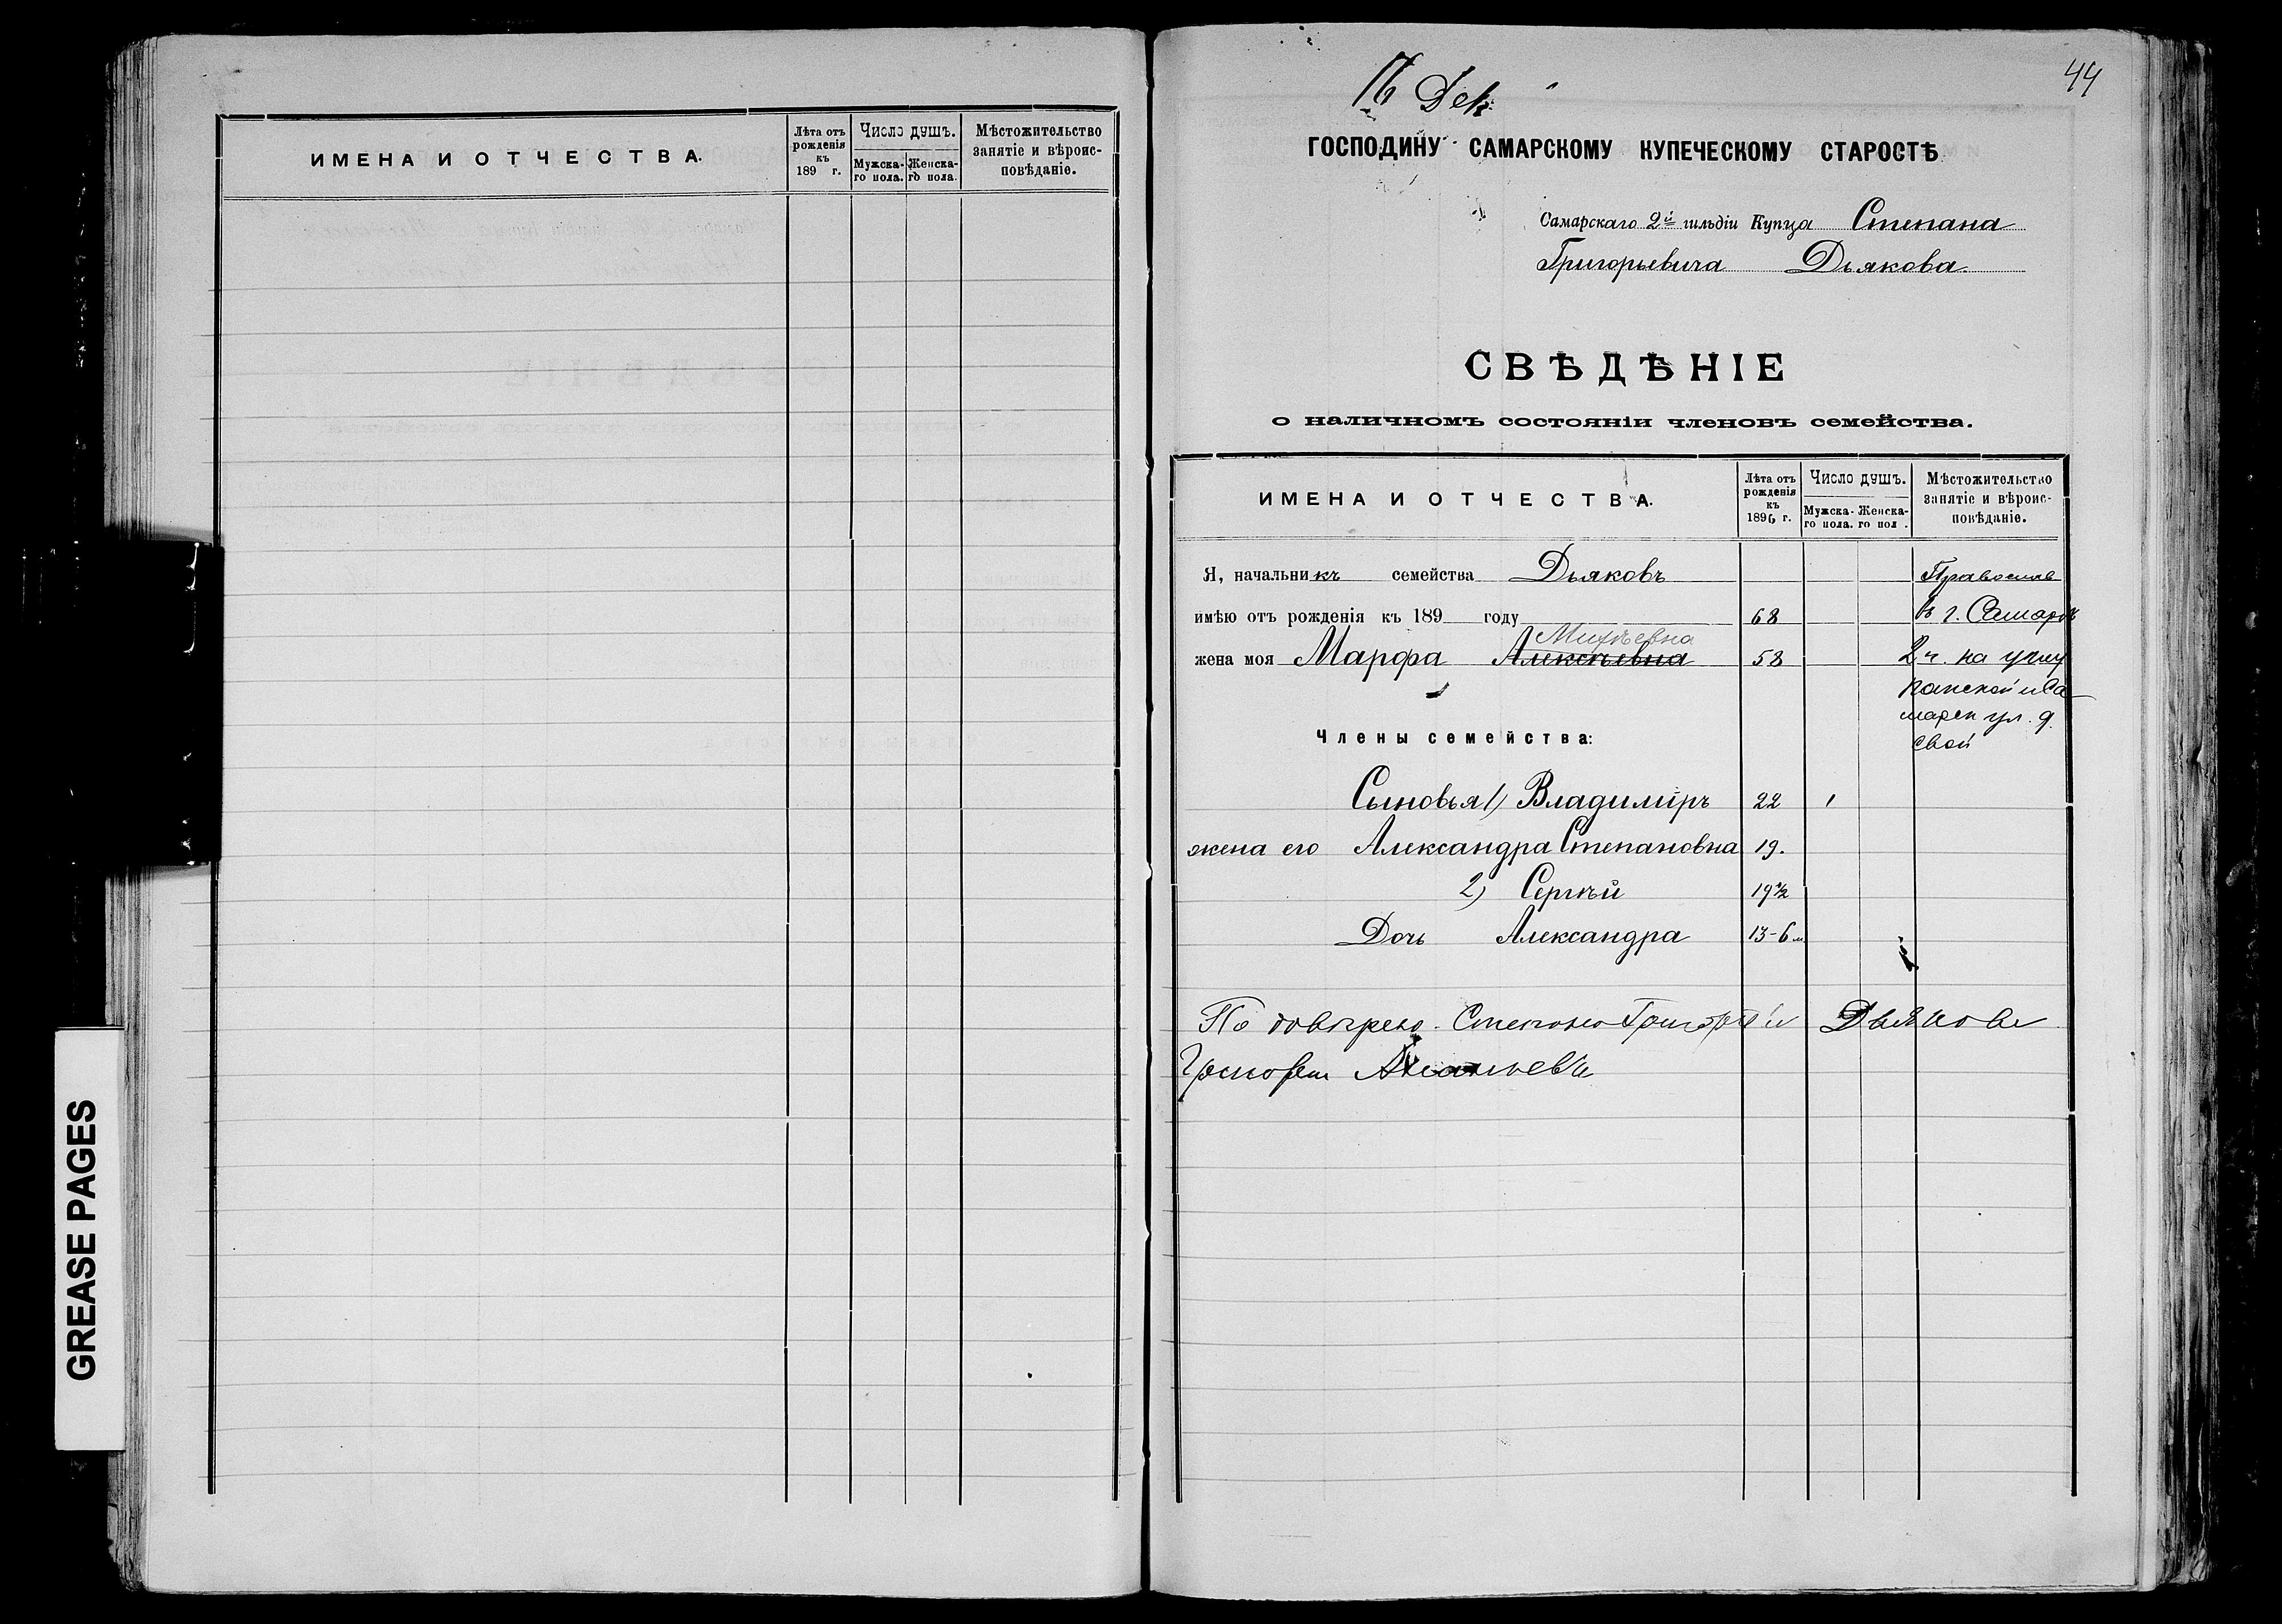 ИМЕНА И ОТЧЕСТВА.
Лѣта отъ рожденія къ 189 г.
Число душъ.
Мужска-го пола.
Женска-го пола.
Мѣстожительство занятіе и вѣроис-повѣданіе.
GREASE PAGES
44
16 Дек.
ГОСПОДИНУ САМАРСКОМУ КУПЕЧЕСКОМУ СТАРОСТѢ
Самарскаго 2й гильдіи Купца Степана
Григорьевича Дьякова.
СВѢДѢНІЕ
о наличномъ состояніи членовъ семейства.
ИМЕНА И ОТЧЕСТВА.
Лѣта отъ рожденія къ 1896 г.
Число душъ.
Мужска-го пола.
Женска-го пол .
Мѣстожительство занятіе и вѣроис-повѣданіе.
Я, начальникъ семейства Дьяковъ Православ
имѣю отъ рожденія къ 189 году 68 въ г. Самарѣ
Михѣевна
жена моя Марфа Алексѣевна 58 2 ч. на углу
панской и Са-
марск ул. д.
свой
Члены семейства:
Сыновья 1) Владиміръ 22 1
жена его Александра Степановна 19.
2) Сергѣй 19½
Дочь Александра 13-6 м
По довѣрено. Степана Григорьи Дьякова